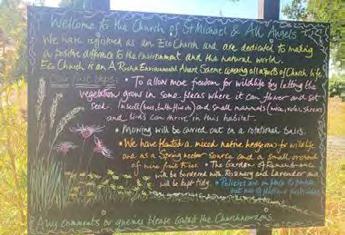 Welcome to the Church of St Michael & All Angels
We have registered as an Eco Church and are dedicated to making
a positive difference to the environment and the natural world.
Eco Church is an A Rocha Environmental Award Scheme covering all aspects of Church life
• To allow more freedom for wildlife by letting the
vegetation grow in some places where it can flower and set
seed. Insects (bees, butterflies) and small mammals (mice, voles, shrews
and birds can thrive in this habitat.
• Mowing will be carried out on a rotational basis.
• We have planted a mixed native hedgerow for wildlife
and as a Spring nectar source and a small orchard
of nine fruit trees. • The Garden of Remembrance
will be bordered with Rosemary and Lavender and
will be kept tidy. • Policies are in place to
Any comments or queries please contact the Churchwardens.